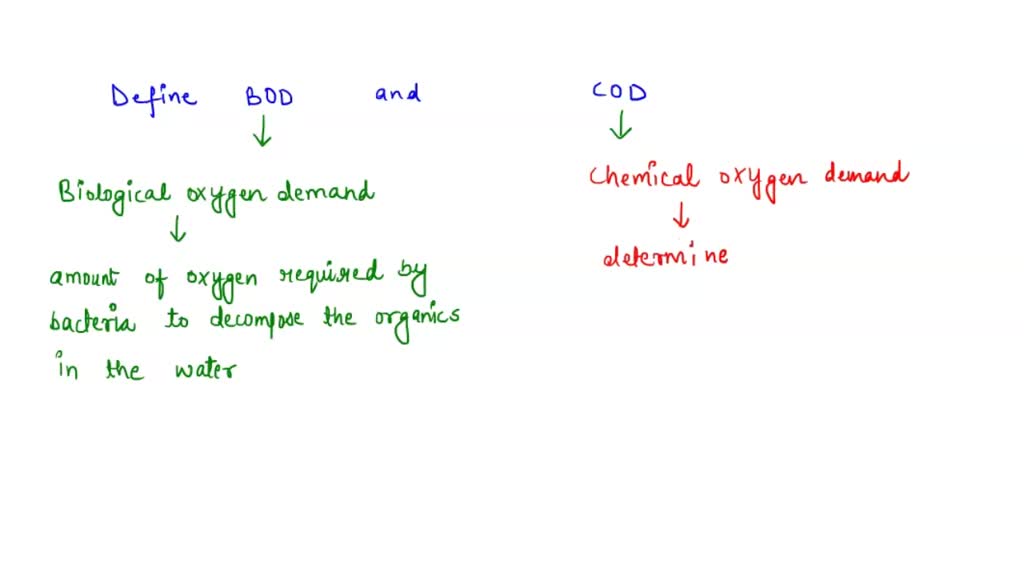 Define BOD and COD
Biological oxygen demand
amount of oxygen required by
bacteria to decompose the organics
in the water
Chemical oxygen demand
determine